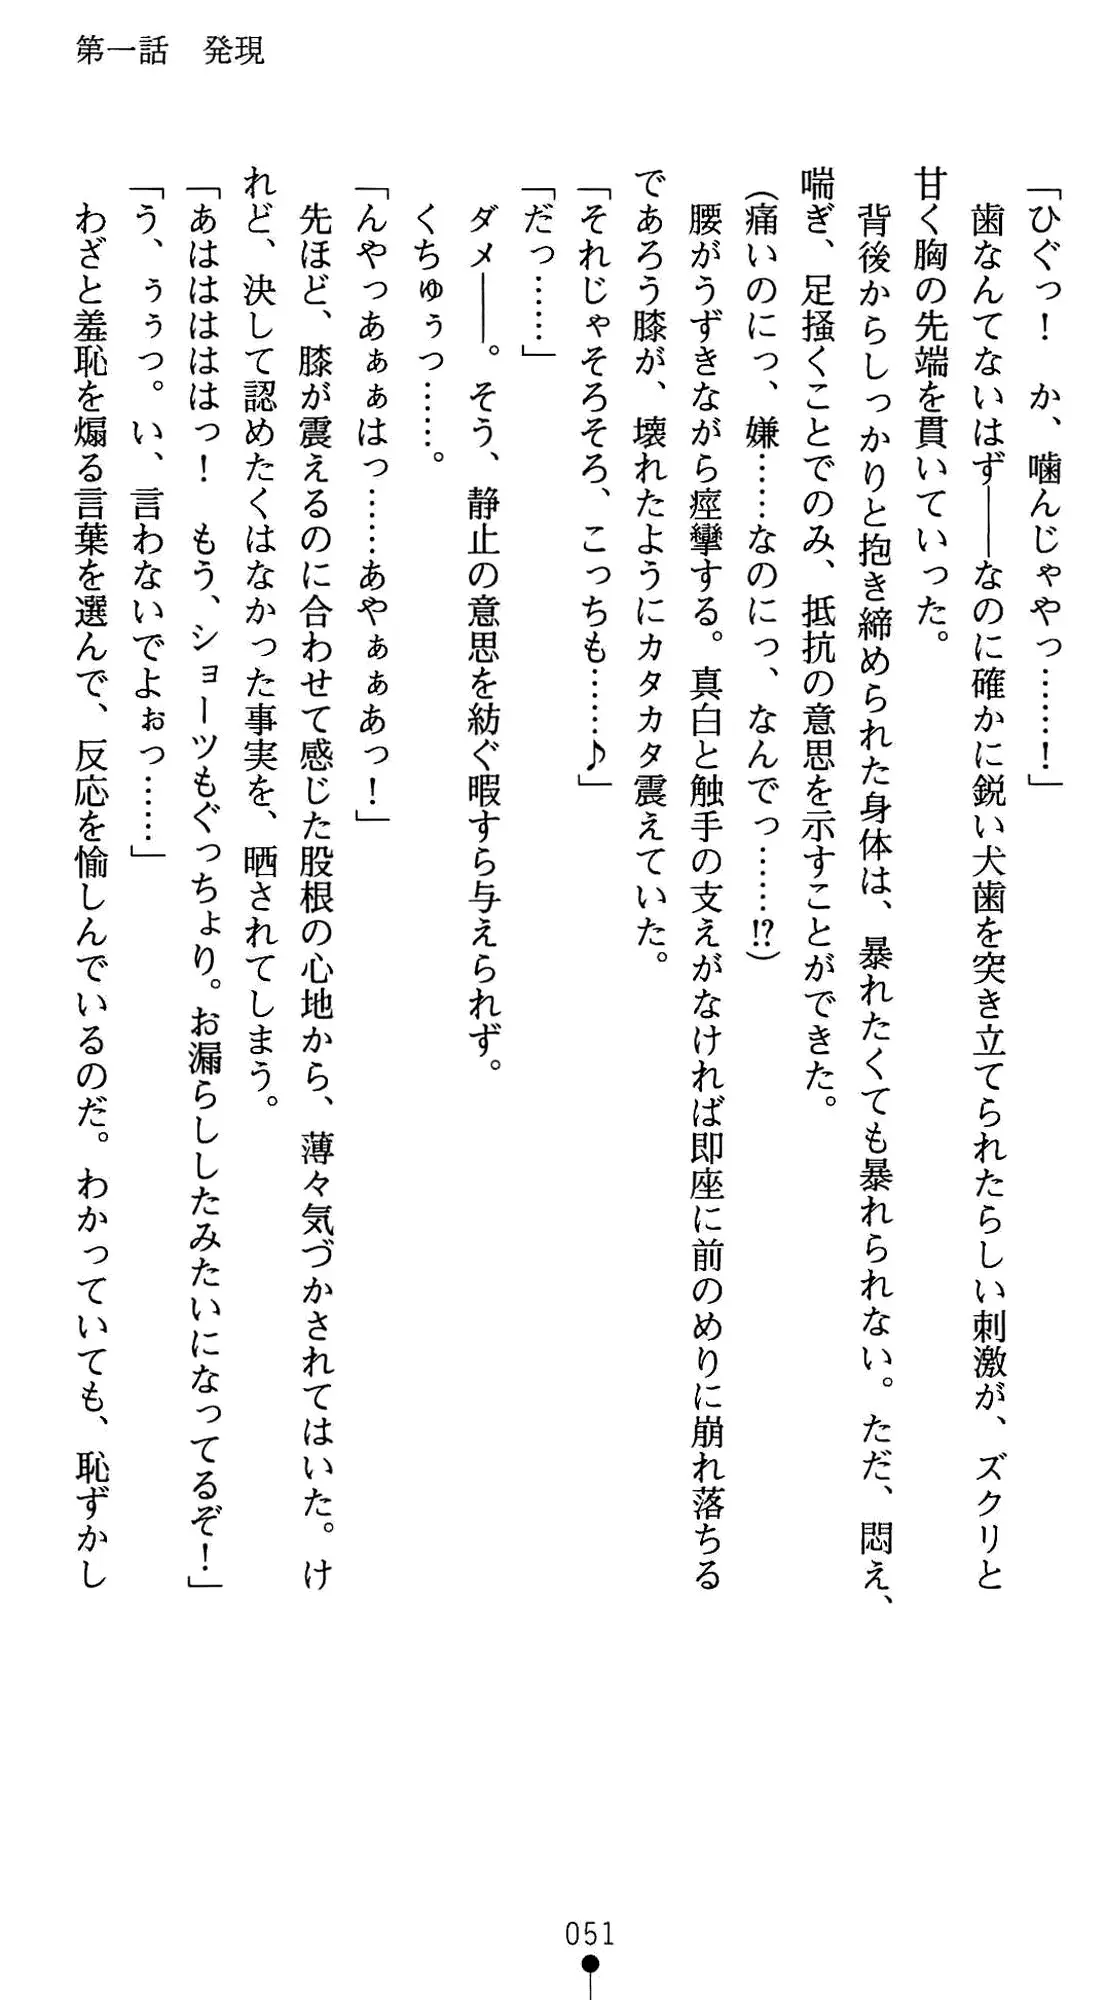 第一話　発現
「ひぐっ！　か、噛んじゃやっ……！」
　歯なんてないはず――なのに確かに鋭い犬歯を突き立てられたらしい刺激が、ズクリと
甘く胸の先端を貫いていった。
　背後からしっかりと抱き締められた身体は、暴れたくても暴れられない。ただ、悶え、
喘ぎ、足掻くことでのみ、抵抗の意思を示すことができた。
（痛いのにっ、嫌……なのにっ、なんでっ……!?）
　腰がうずきながら痙攣する。真白と触手の支えがなければ即座に前のめりに崩れ落ちる
であろう膝が、壊れたようにカタカタ震えていた。
「それじゃそろそろ、こっちも……♪」
「だっ……」
　ダメ――。そう、静止の意思を紡ぐ暇すら与えられず。
　くちゅぅっ……。
「んやっあぁぁはっ……あやぁぁあっ！」
　先ほど、膝が震えるのに合わせて感じた股根の心地から、薄々気づかされてはいた。け
れど、決して認めたくはなかった事実を、晒されてしまう。
「あはははははっ！　もう、ショーツもぐっちょり。お漏らししたみたいになってるぞ！」
「う、ぅぅっ。い、言わないでよぉっ……」
　わざと羞恥を煽る言葉を選んで、反応を愉しんでいるのだ。わかっていても、恥ずかし
051